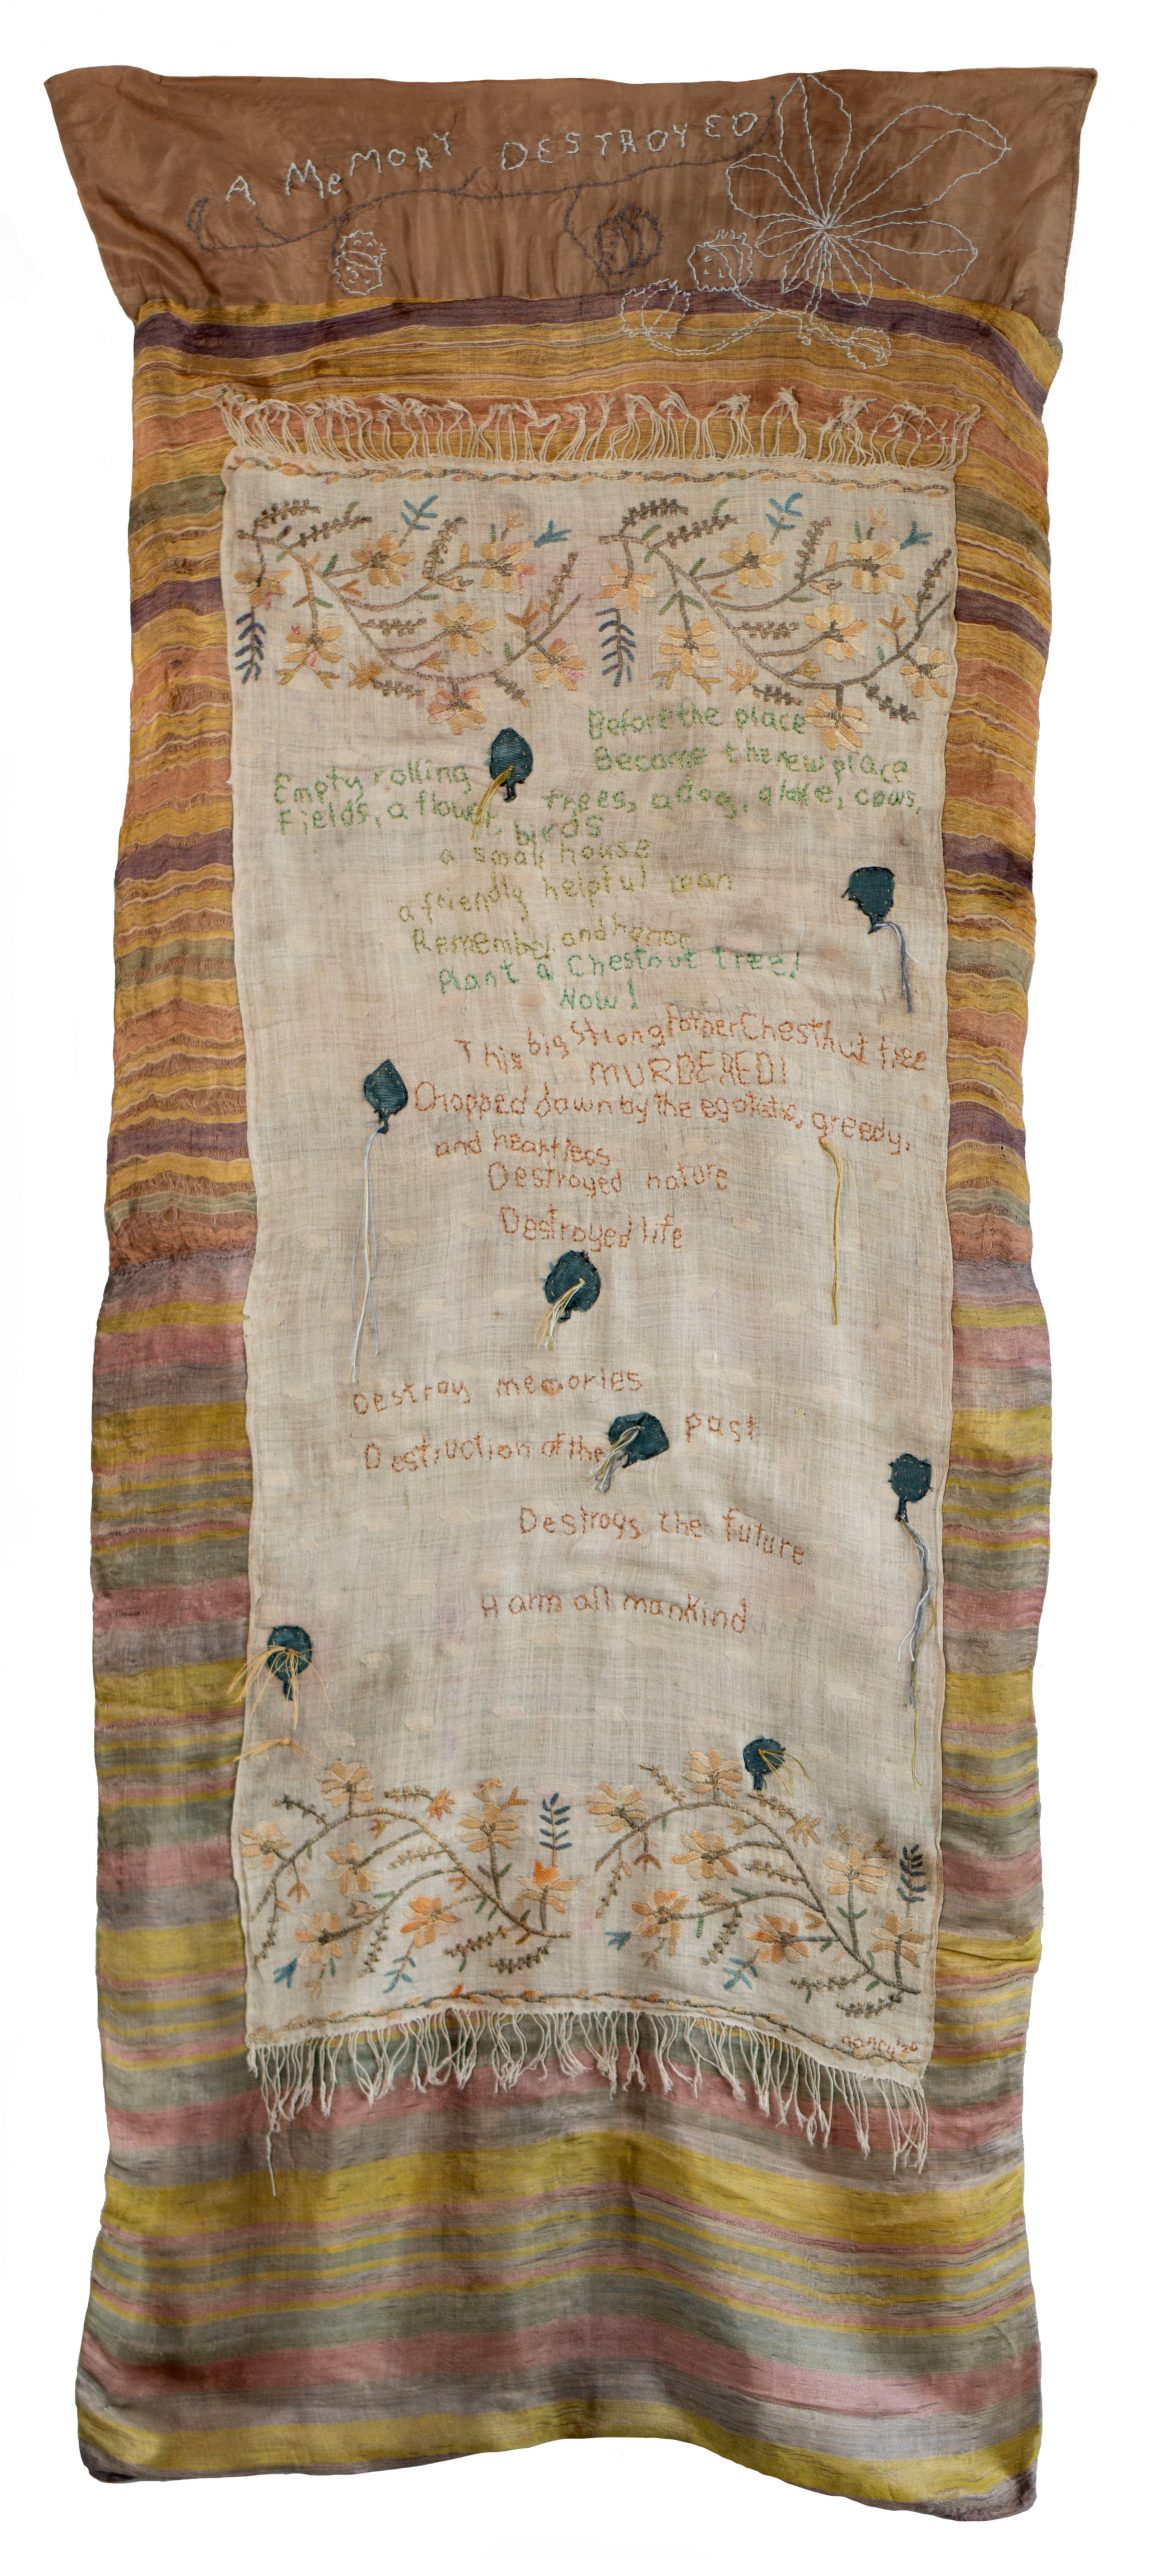 A MEMORY DESTROYED
Before the place
Became the new place
Empty rolling
Fields, a flower, trees, a dog, a lake, cows,
birds
a small house
a friendly helpful man
Remember and honor
Plant a Chestnut tree!
Now!
This big strong Father Chestnut tree
MURDERED!
Chopped down by the egotistic, greedy,
and heartless
Destroyed nature
Destroyed life
Destroy memories
Destruction of the past
Destroys the future
Harm all mankind